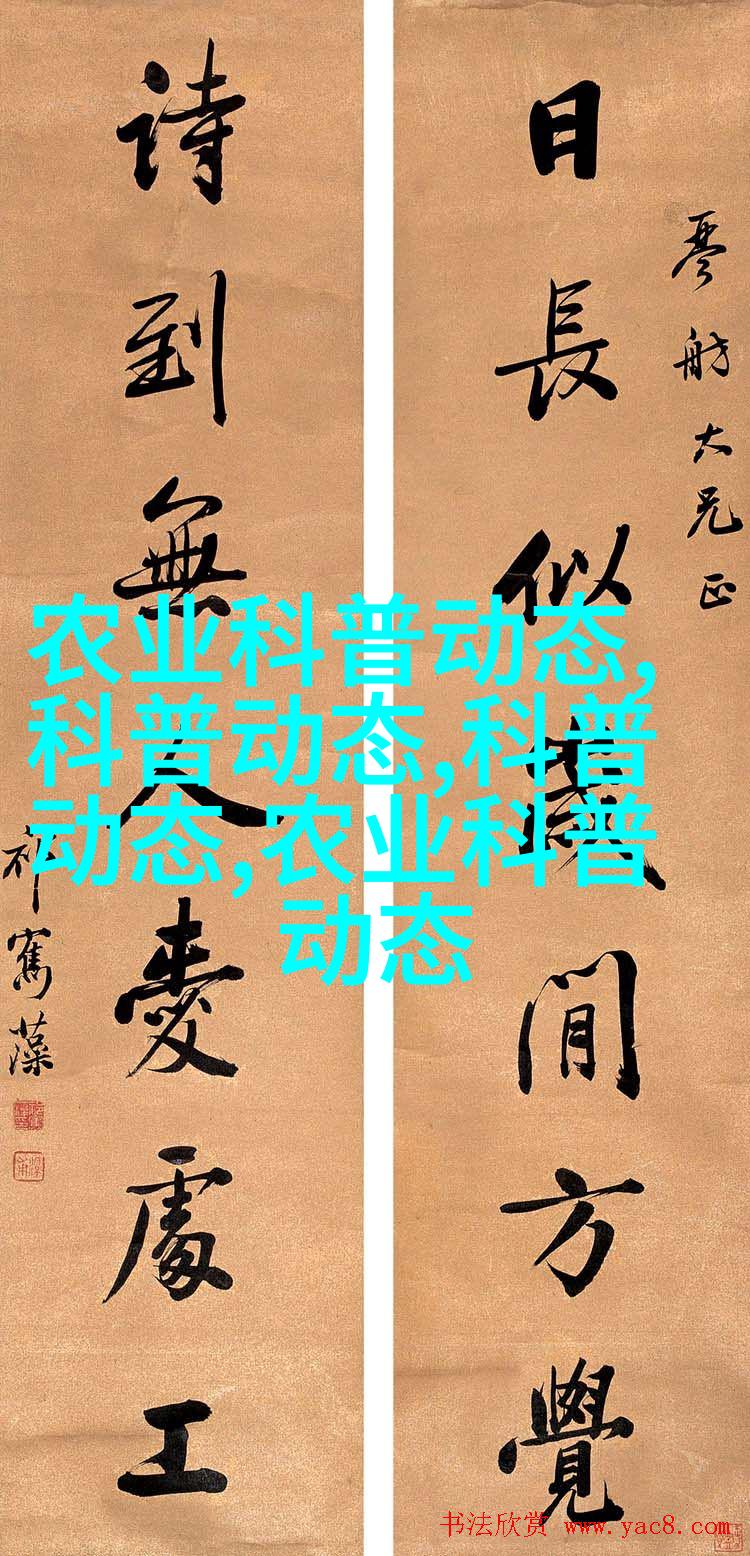 琴舫大兄正
日長似歲閒方覺
詩到無人愛處工
祁寯藻
农业科普动态,
科普动态,科普
动态,农业科普
动态
书法欣赏 www.yac8.com